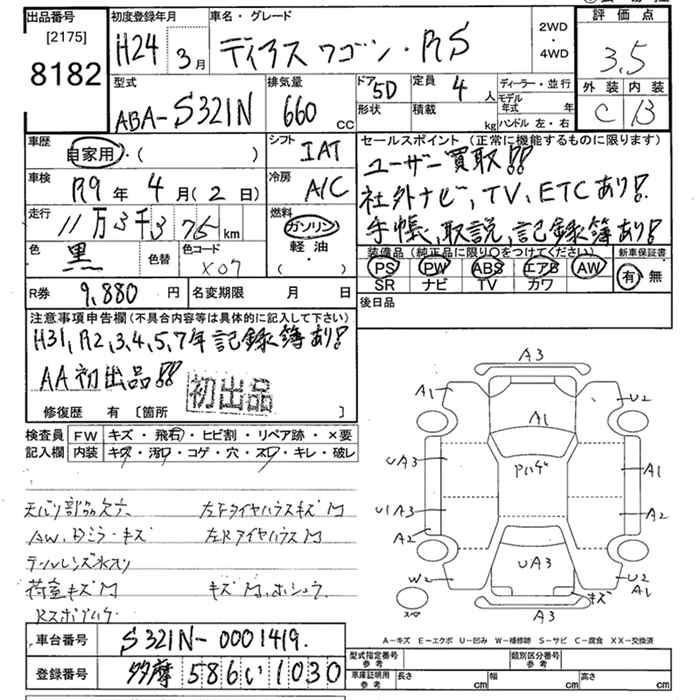 出品番号 初度登録年月 車名・グレード 評価点
[2175] H24 3月 ディアス ワゴン・RS 2WD・4WD 3,5
8182 型式 排気量 ドア 5D 定員 4人 ディーラー・並行 外装 内装
ABA-S321N 660 CC 形状 積載 kg モデル年式 年 C B
ハンドル 左・右
車歴 自家用・( ) シフト IAT セールスポイント (正常に機能するものに限ります)
車検 R9年 4月(2日) 冷房 A/C ユーザー買取!!
社外ナビ,TV,ETCあり!
走行 11万3千375km 燃料 ガソリン 軽油 ( ・ ) 手帳、取説、記録簿あり!
色 黒 色替 色コード X07 装備品(純正品に限り○をつけてください) 新車保証書
PS PW ABS エアB AW 有・無
SR ナビ TV カワ
R券 9,880円 名変期限 月 日 後日品
注意事項申告欄(不具合内容等は具体的に記入して下さい)
H31,R2,3,4,5,7年記録簿あり!
AA初出品!! 初出品
修復歴 有 〔箇所 〕
検査員 FW キズ・飛石・ヒビ割・リペア跡・×要
記入欄 内装 キズ・汚れ・コゲ・穴・スレ・キレ・破レ
A3
A1 U2
A1
UA3 Pハゲ A1
U1A3 A2
A2
UA3
U2
A1
キズ
スペ A3
天バリ部品欠 左FタイヤハウスキズM
AW,Dミラーキズ 左Rタイヤハウス M
テールレンズ水入り
荷室キズM キズM,ホシュウ
A-キズ E-エクボ U-凹み W-補修跡 S-サビ C-腐食 XX-交換済
車台番号 S321N-0001419.
登録番号 多摩 586 い 1030
型式指定番号 参考 類別区分番号 参考
車庫証明用 参考 長さ cm 幅 cm 高さ cm